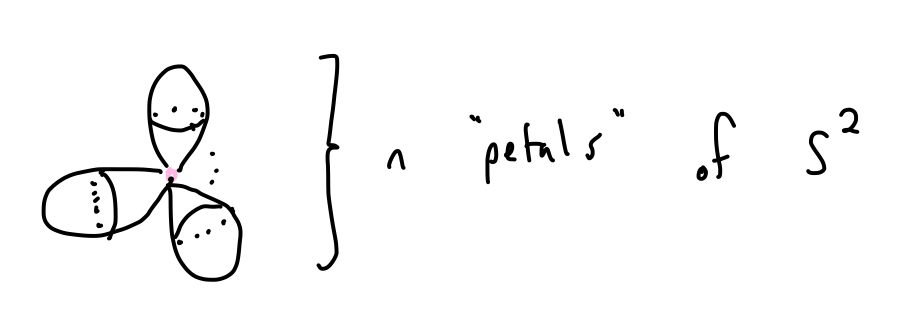 n "petals" of S²